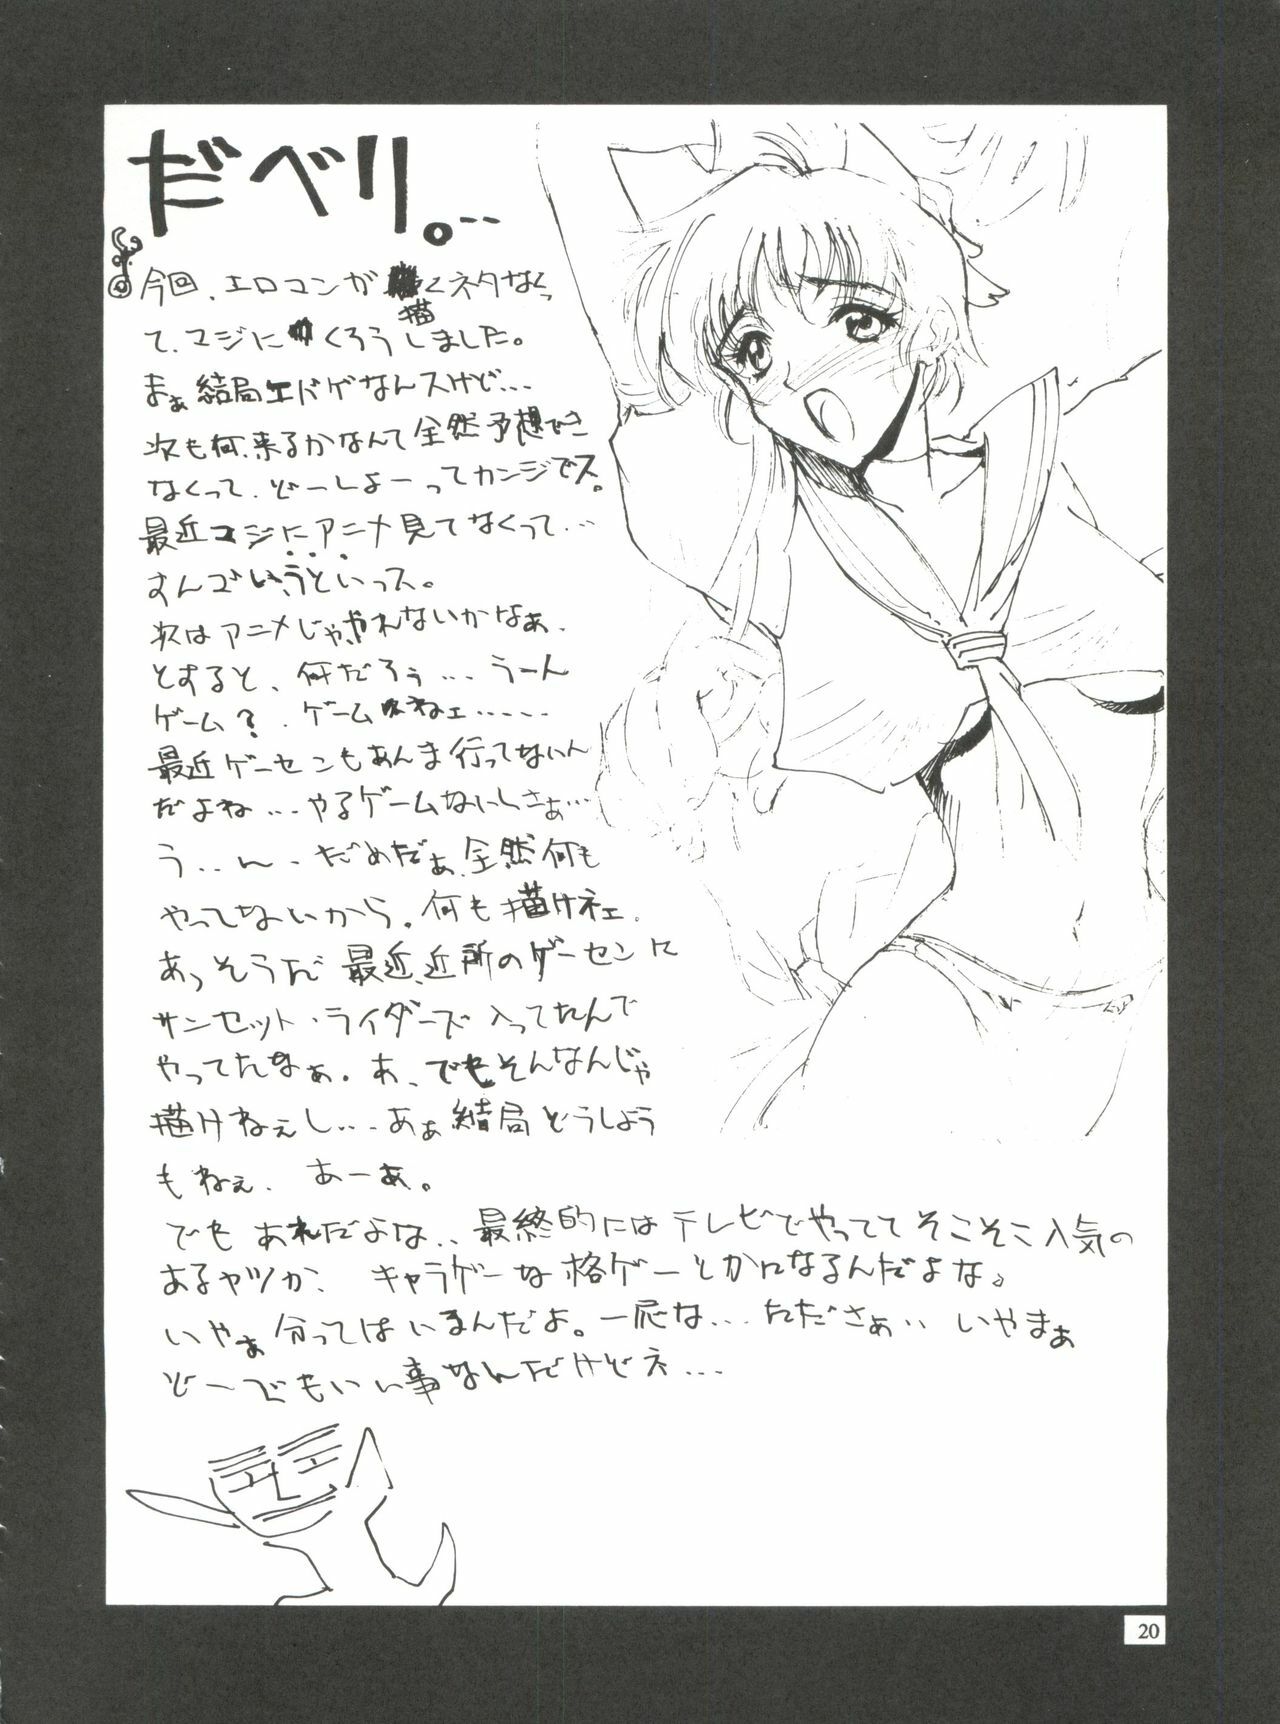 だべり。…
今回、エロマンガ描くネタなくっ
て、マジにくろうしました。
まぁ結局エドゲなんスけど…
次も何、来るかなんて全然予想でき
なくって、どーしよーってカンジでス。
最近マジにアニメ見てなくって…
すんごいうといっス。
次はアニメじゃ、やれないかなぁ、
とすると、何だろぅ…うーん
ゲーム?、ゲームねェ……
最近ゲーセンもあんま行ってないん
だよね…やるゲームないしさぁ…
う..ん..だめだぁ、全然何も
やってないから。何も描けネェ、
あっそうだ 最近、近所のゲーセンに
サンセット・ライダーズ入ってたんで
やってたなぁ。あ、でもそんなんじゃ
描けねぇし…あぁ結局どうしよう
もねぇ、あーぁ。
でも あれだよな..最終的にはテレビでやってて そこそこ人気の
あるヤツか、キャラゲーな格ゲーとかになるんだよな。
いやぁ分ってはいるんだよ。一応な…たださぁ.. いやまぁ
どーでもいい事なんだけどネ…
20